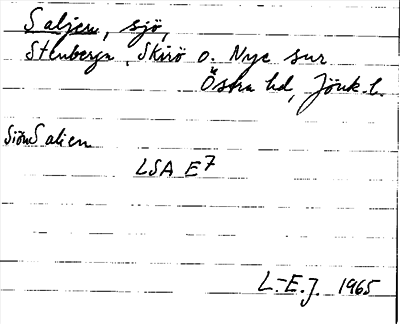 Saljen, sjö,
Stenberga, Skirö o. Nye snr
Östra hd, Jönk. l.
Sjön Salien
LSA E7
L.-E. J. 1965